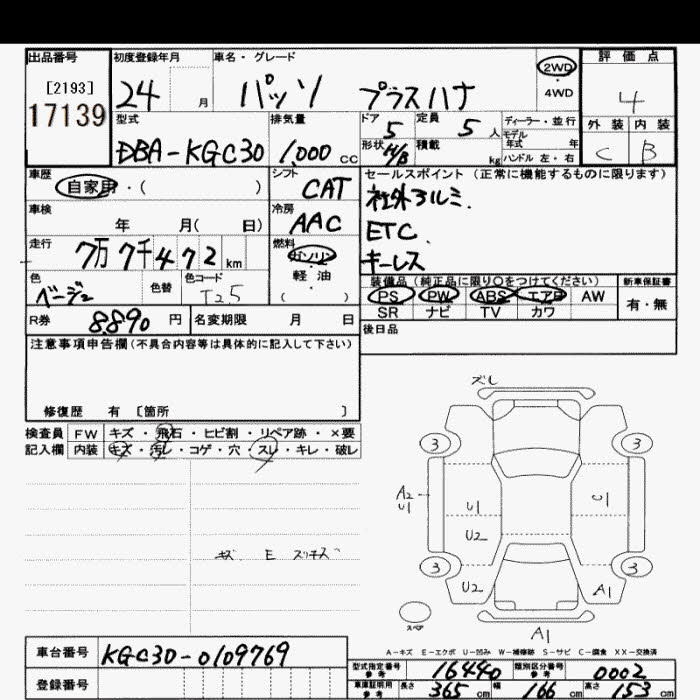 出品番号 初度登録年月 車名・グレード 2WD ・ 4WD 評価点
[2193] 17139 24 月 パッソ プラスハナ 4
型式 排気量 ドア 5 定員 5 人 ディーラー・並行 モデル 年式 年 外装 内装
DBA-KGC30 1,000 cc 形状 H/B 積載 kg ハンドル 左・右 C B
車歴 自家用・( ) シフト CAT セールスポイント(正常に機能するものに限ります)
車検 年 月( 日) 冷房 AAC 社外アルミ.
ETC.
キーレス
走行 7万7千472km 燃料 ガソリン 軽油 ( )
色 ベージュ 色替 色コード T25
装備品(純正品に限り○をつけてください) 新車保証書
PS PW ABS エアB AW 有・無
SR ナビ TV カワ
R券 8890 円 名変期限 月 日 後日品
注意事項申告欄(不具合内容等は具体的に記入して下さい)
修復歴 有 〔箇所 〕
検査員 FW キズ・飛石・ヒビ割・リペア跡・×要
記入欄 内装 キズ・汚レ・コゲ・穴・スレ・キレ・破レ
キズ E スリキズ
ズレ
3 3
A2 U1 U1 U1
U2
3 3
U2 A1
スペア
A1
A-キズ E-エクボ U-凹み W-補修跡 S-サビ C-腐食 XX-交換済
車台番号 KGC30-0109769
登録番号
型式指定番号 参考 16440 類別区分番号 参考 0002
車庫証明用 参考 長さ 365 cm 幅 166 cm 高さ 153 cm